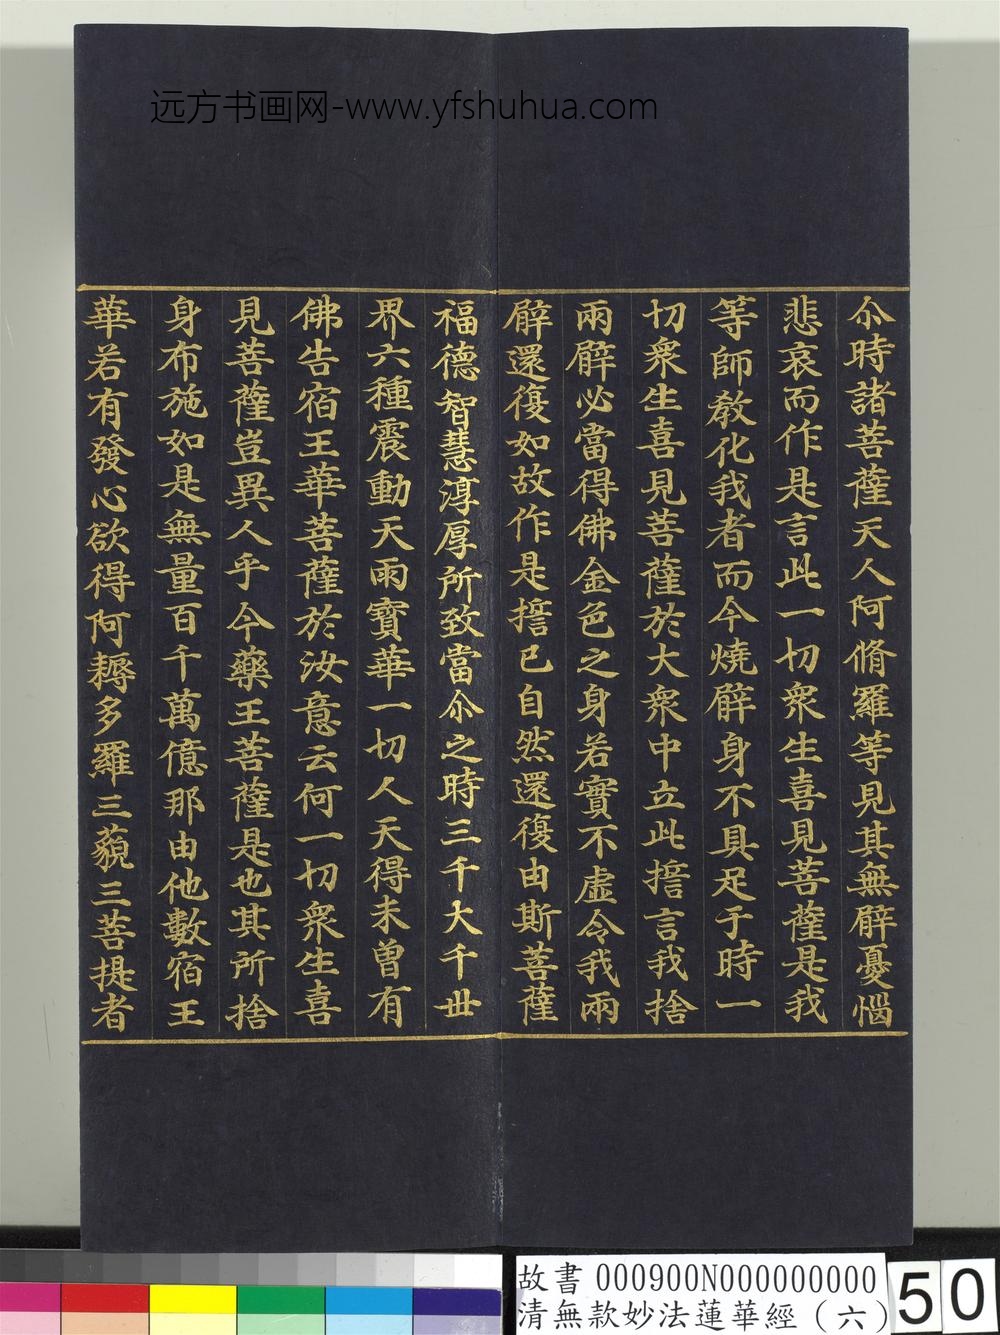 远方书画网-www.yfshuhua.com
尒時諸菩薩天人阿脩羅等見其無臂憂惱
悲哀而作是言此一切眾生喜見菩薩是我
等師教化我者而今燒臂身不具足于時一
切眾生喜見菩薩於大眾中立此誓言我捨
兩臂必當得佛金色之身若實不虛令我兩
臂還復如故作是誓已自然還復由斯菩薩
福德智慧淳厚所致當尒之時三千大千世
界六種震動天雨寶華一切人天得未曾有
佛告宿王華菩薩於汝意云何一切眾生喜
見菩薩豈異人乎今藥王菩薩是也其所捨
身布施如是無量百千萬億那由他數宿王
華若有發心欲得阿耨多羅三藐三菩提者
故書 000900N000000000
清無款妙法蓮華經（六）
50